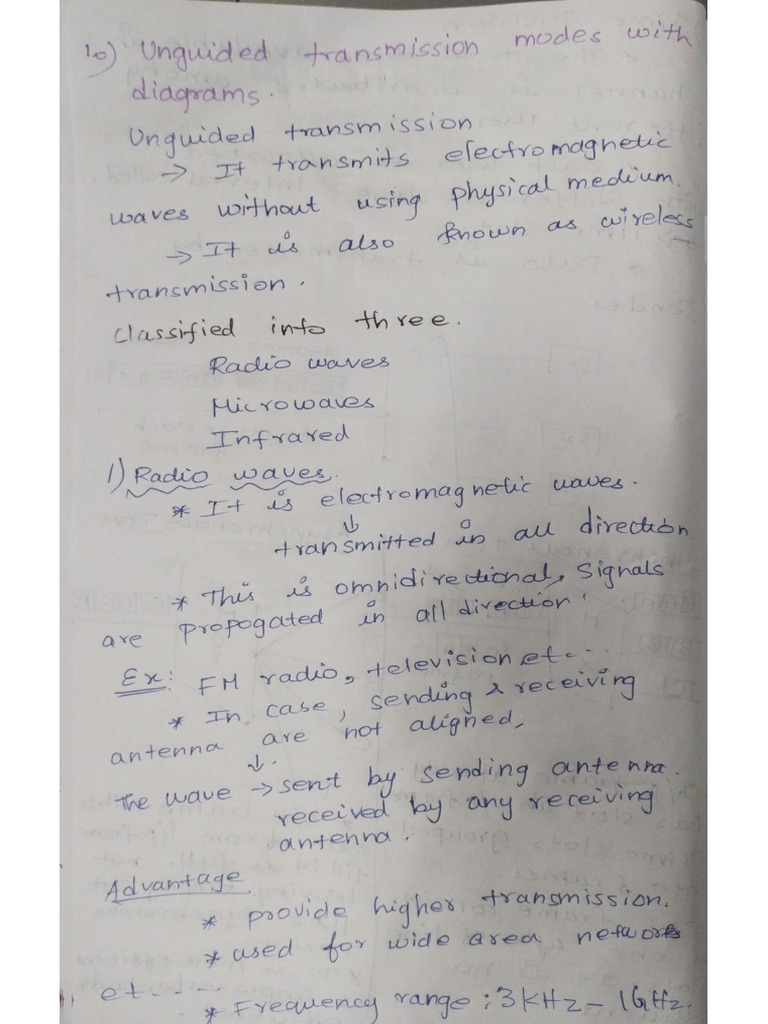 10) Unguided transmission modes with
diagrams.
Unguided transmission
→ It transmits electromagnetic
waves without using physical medium.
→ It is also known as wireless
transmission.
Classified into three.
Radio waves
Microwaves
Infrared
1) Radio waves.
* It is electromagnetic waves.
↓
transmitted in all direction
* This is omnidirectional, signals
are propogated in all direction.
Ex: FM radio, television etc...
* In case, sending & receiving
antenna are not aligned,
↓
The wave → sent by sending antenna.
received by any receiving
antenna.
Advantage
* provide higher transmission.
* used for wide area networks
et....
* Frequency range : 3KHz - 1GHz.